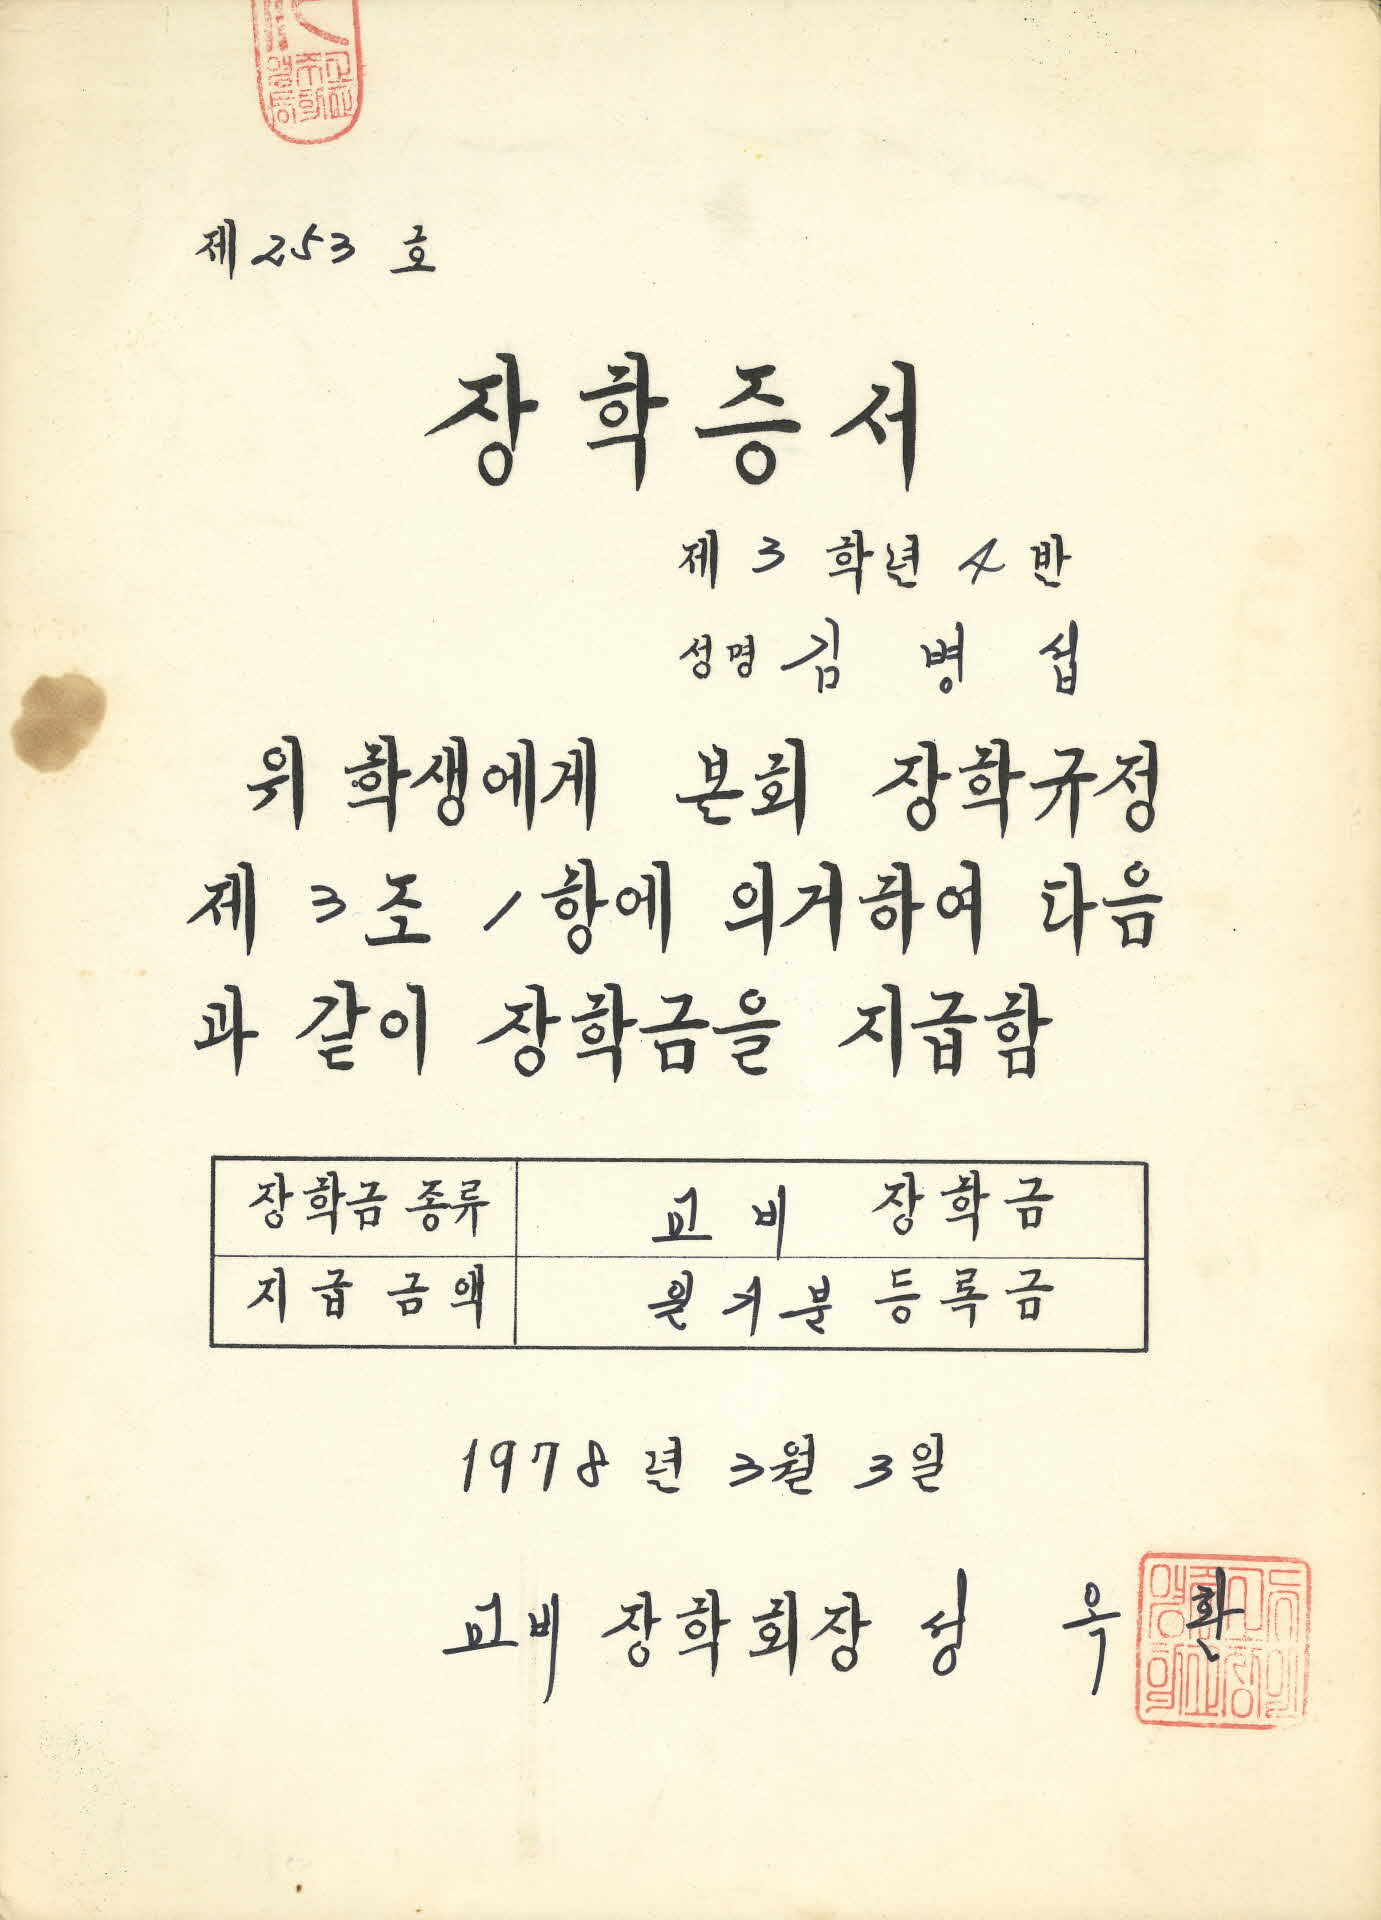 제 253 호
장학증서
제 3 학년 4 반
성명 김 병 섭
위 학생에게 본회 장학규정
제 3조 1항에 의거하여 다음
과 같이 장학금을 지급함
장학금 종류 교비 장학금
지급 금액 일기분 등록금
1978년 3월 3일
교비 장학회장 성 옥 환